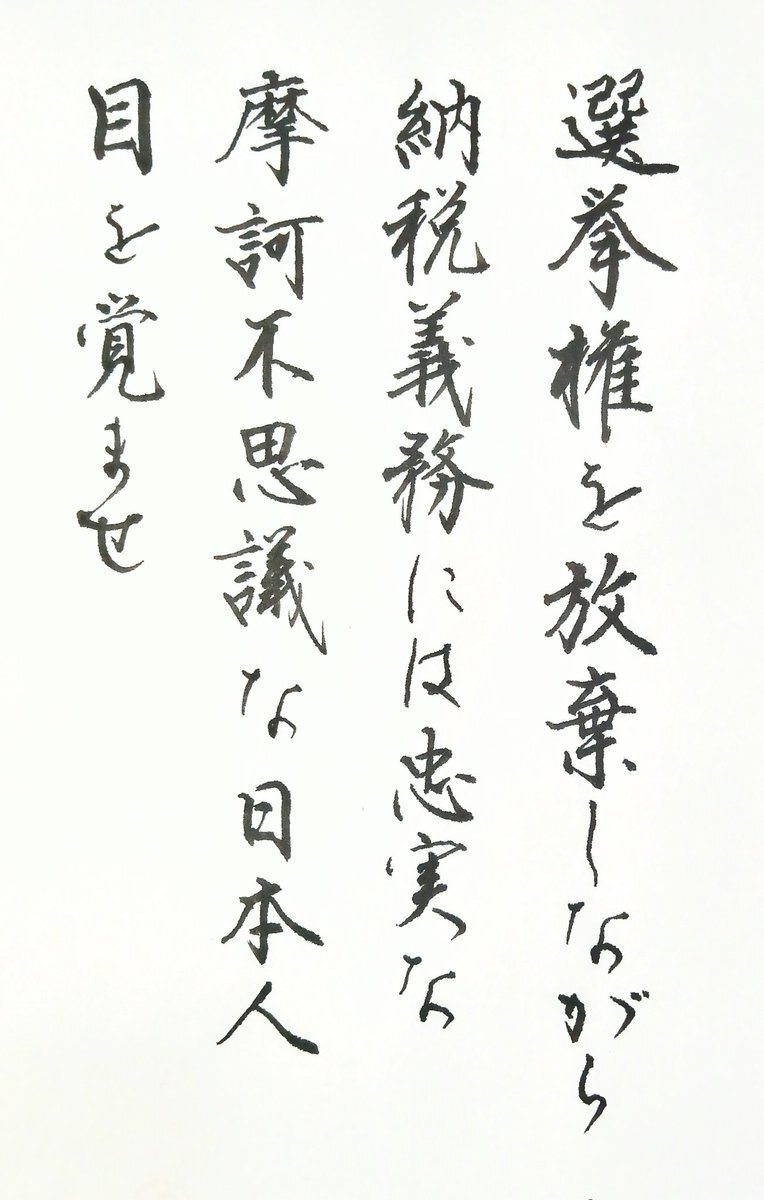 選挙権を放棄しながら
納税義務には忠実な
摩訶不思議な日本人
目を覚ませ